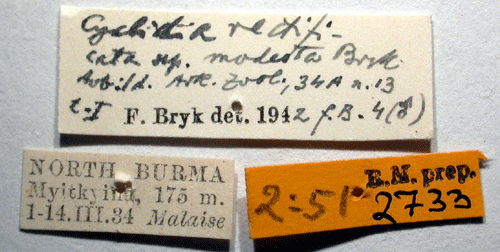 Cyclidia rectifi-
cata ssp. modesta Bryk
Avbild. Ark. Zool., 34A n. 13
t-I F. Bryk det. 1942 f. B. 4 (♂)
NORTH BURMA
Myitkyina, 175 m.
1-14.III.34 Malaise
R.M. prep.
2:51 2733